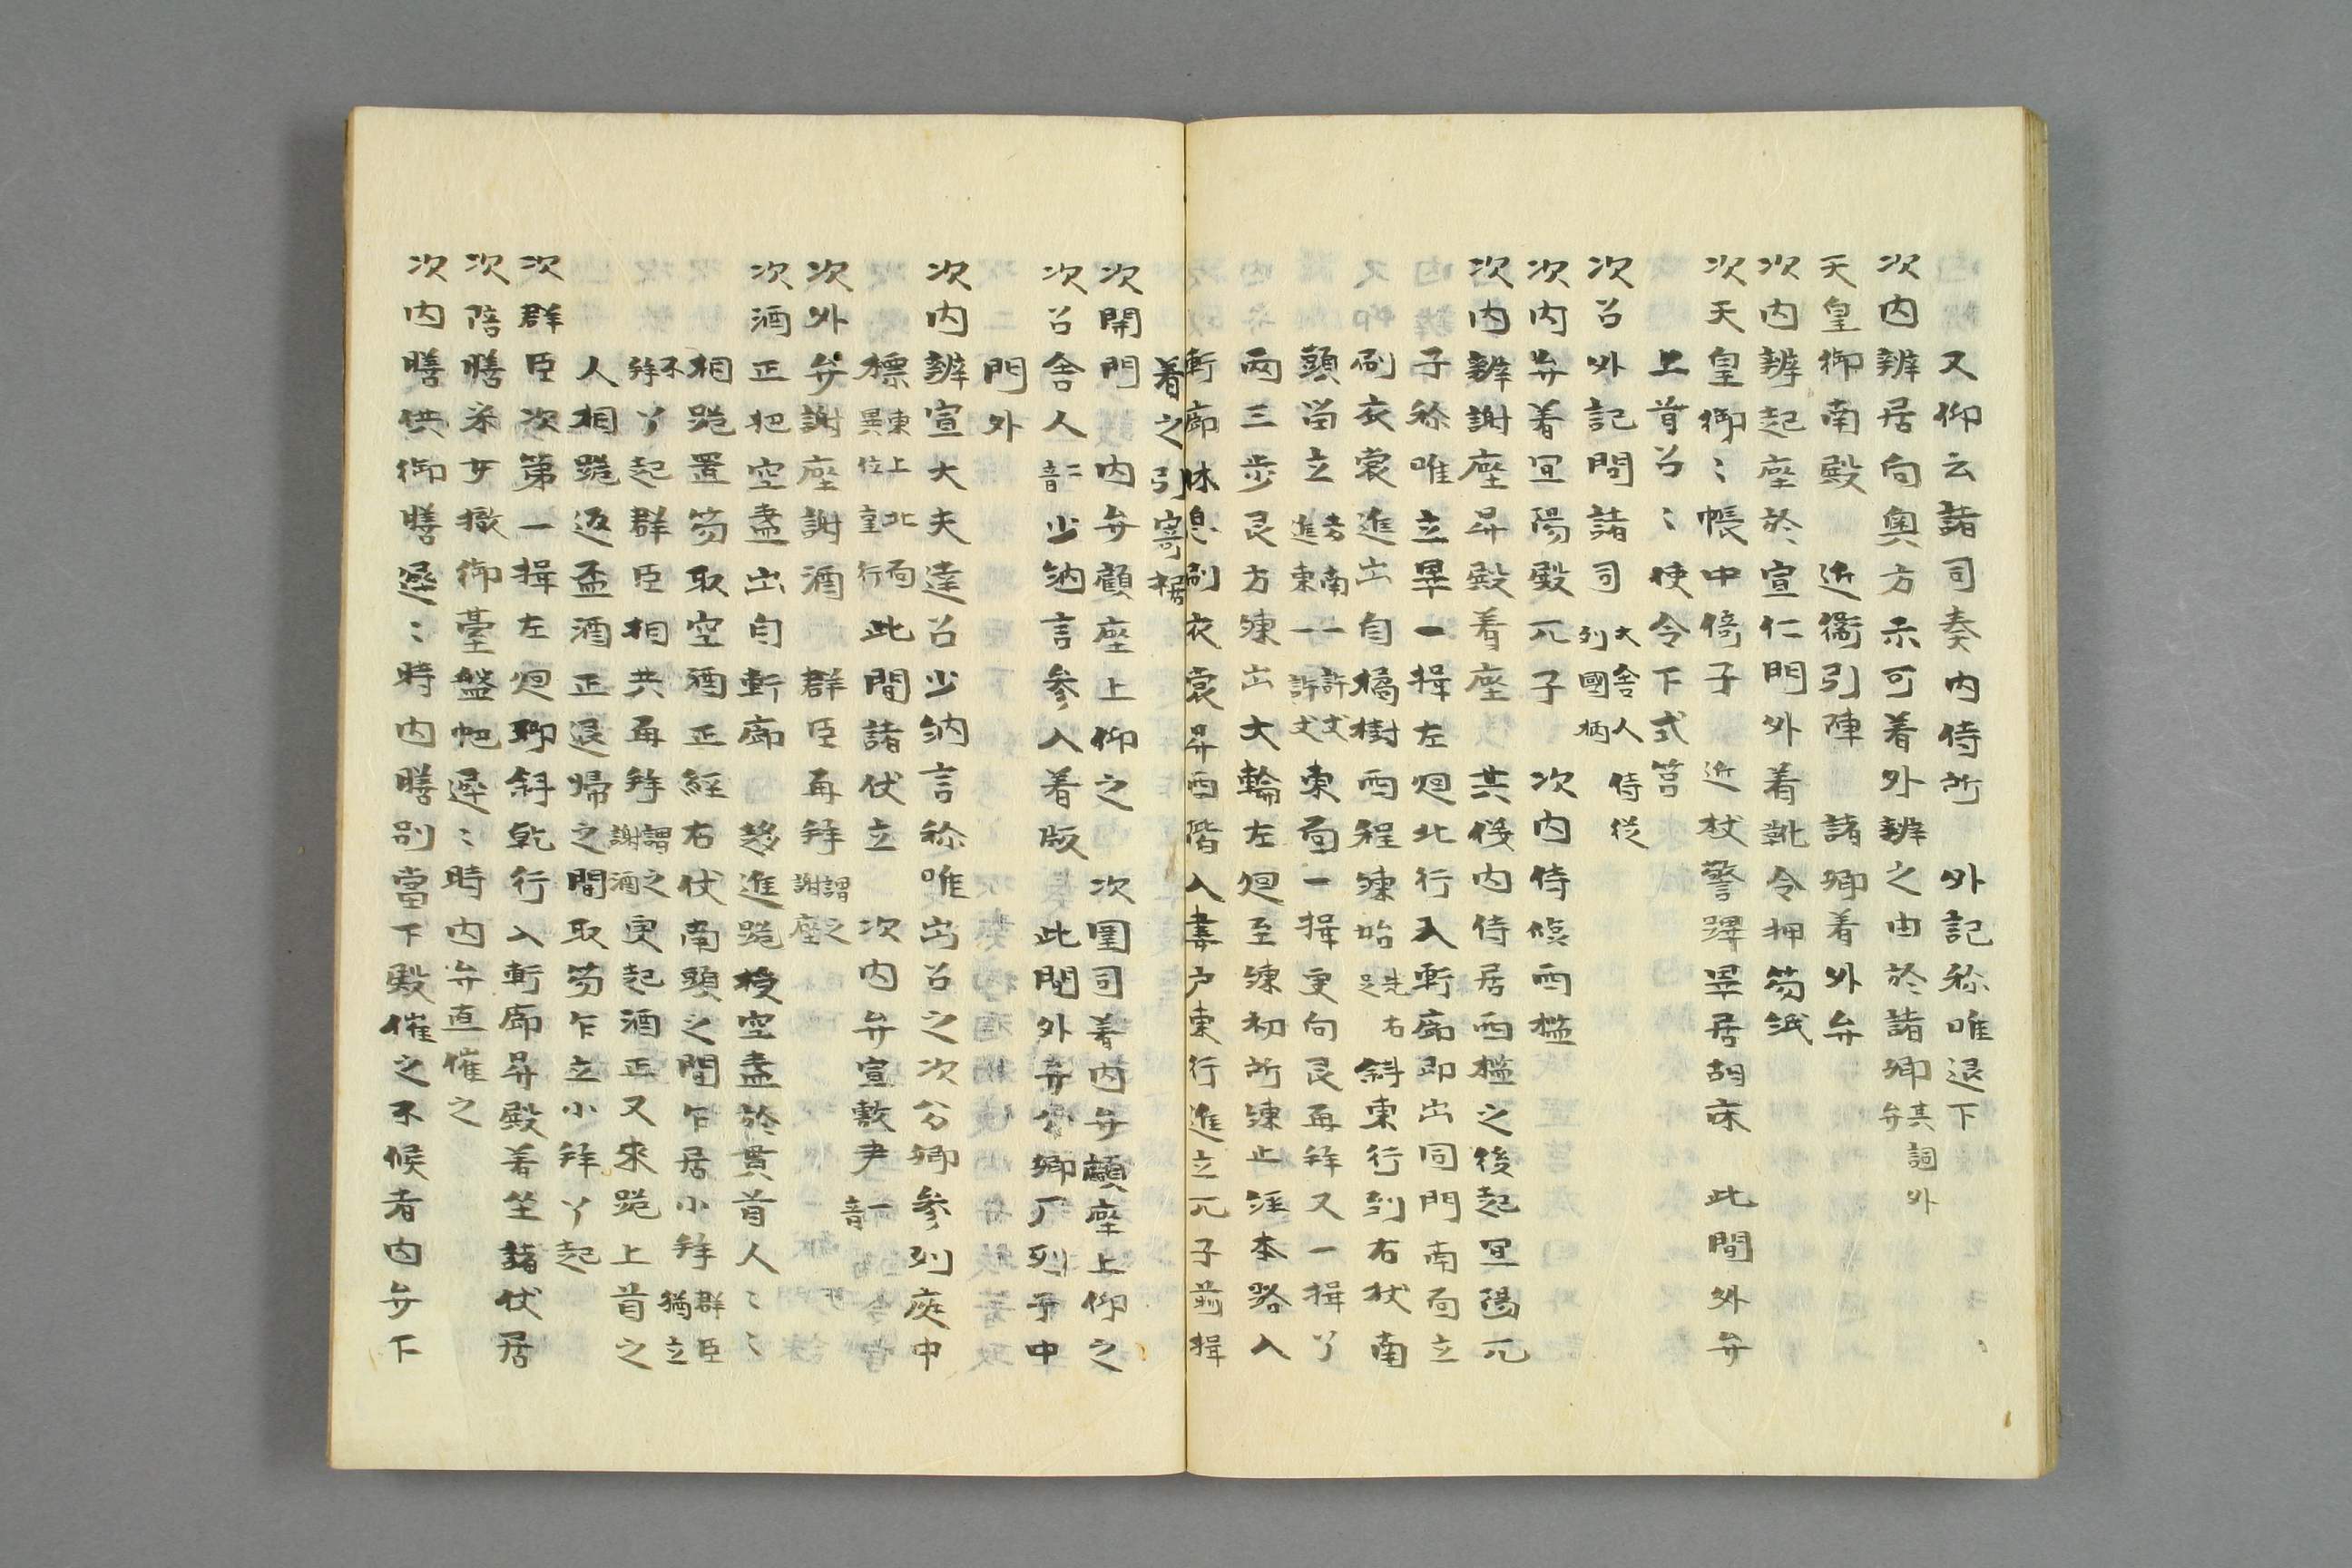 又仰云諸司奏内侍所　外記称唯退下
次内辨居向奥方示可着外辨之由於諸卿其詞外弁
天皇御南殿　近衛引陣　諸卿着外弁
次内辨起座於宣仁門外着靴令押笏紙
次天皇御〻帳中倚子　近杖警蹕畢居胡床　此間外弁
上首召〻使令下式筥
次召外記問諸司大舎人侍従列國栖
次内弁着冝陽殿兀子　次内侍臨西檻
次内辨謝座昇殿着座　其儀内侍居西檻之後起冝陽兀
子称唯立畢一揖左廻北行入軒廊即出同門南面立
刷衣裳進出自橘樹西程練始先右足斜東行到右杖南
頭留立去南一許丈進東一許丈東面一揖更向艮再拜又一揖了
両三歩艮方練出大輪左廻至練初所練止経本路入
軒廊休息刷衣裳昇西階入妻戸東行進立兀子前揖
着之引寄裾
次開門　内弁顧座上仰之　次闈司着内弁顧座上仰之
次召舎人二音少納言参入着版　此間外弁公卿厂列弁中
門外
次内辨宣大夫達召少納言称唯出召之次公卿参列庭中
標東上北面異位重行此間諸伏立　次内弁宣敷尹一音
次外弁謝座謝酒　群臣再拜謂之謝座
次酒正把空盞出自軒廊　趍進跪授空盞於貫首人〻〻
相跪置笏取空酒正経右伏南頭之間乍居小拜群臣猶立
不拜了起群臣相共再拜謂之謝酒更起酒正又來跪上首之
人相跪返盃酒正退帰之間取笏乍立小拜了起
次群臣次第一揖左廻聊斜乾行入軒廊昇殿着坐諸伏居
次陪膳采女撤御臺盤帊還〻時内弁直催之
次内膳供御膳還〻時内膳別當下殿催之不候者内弁下